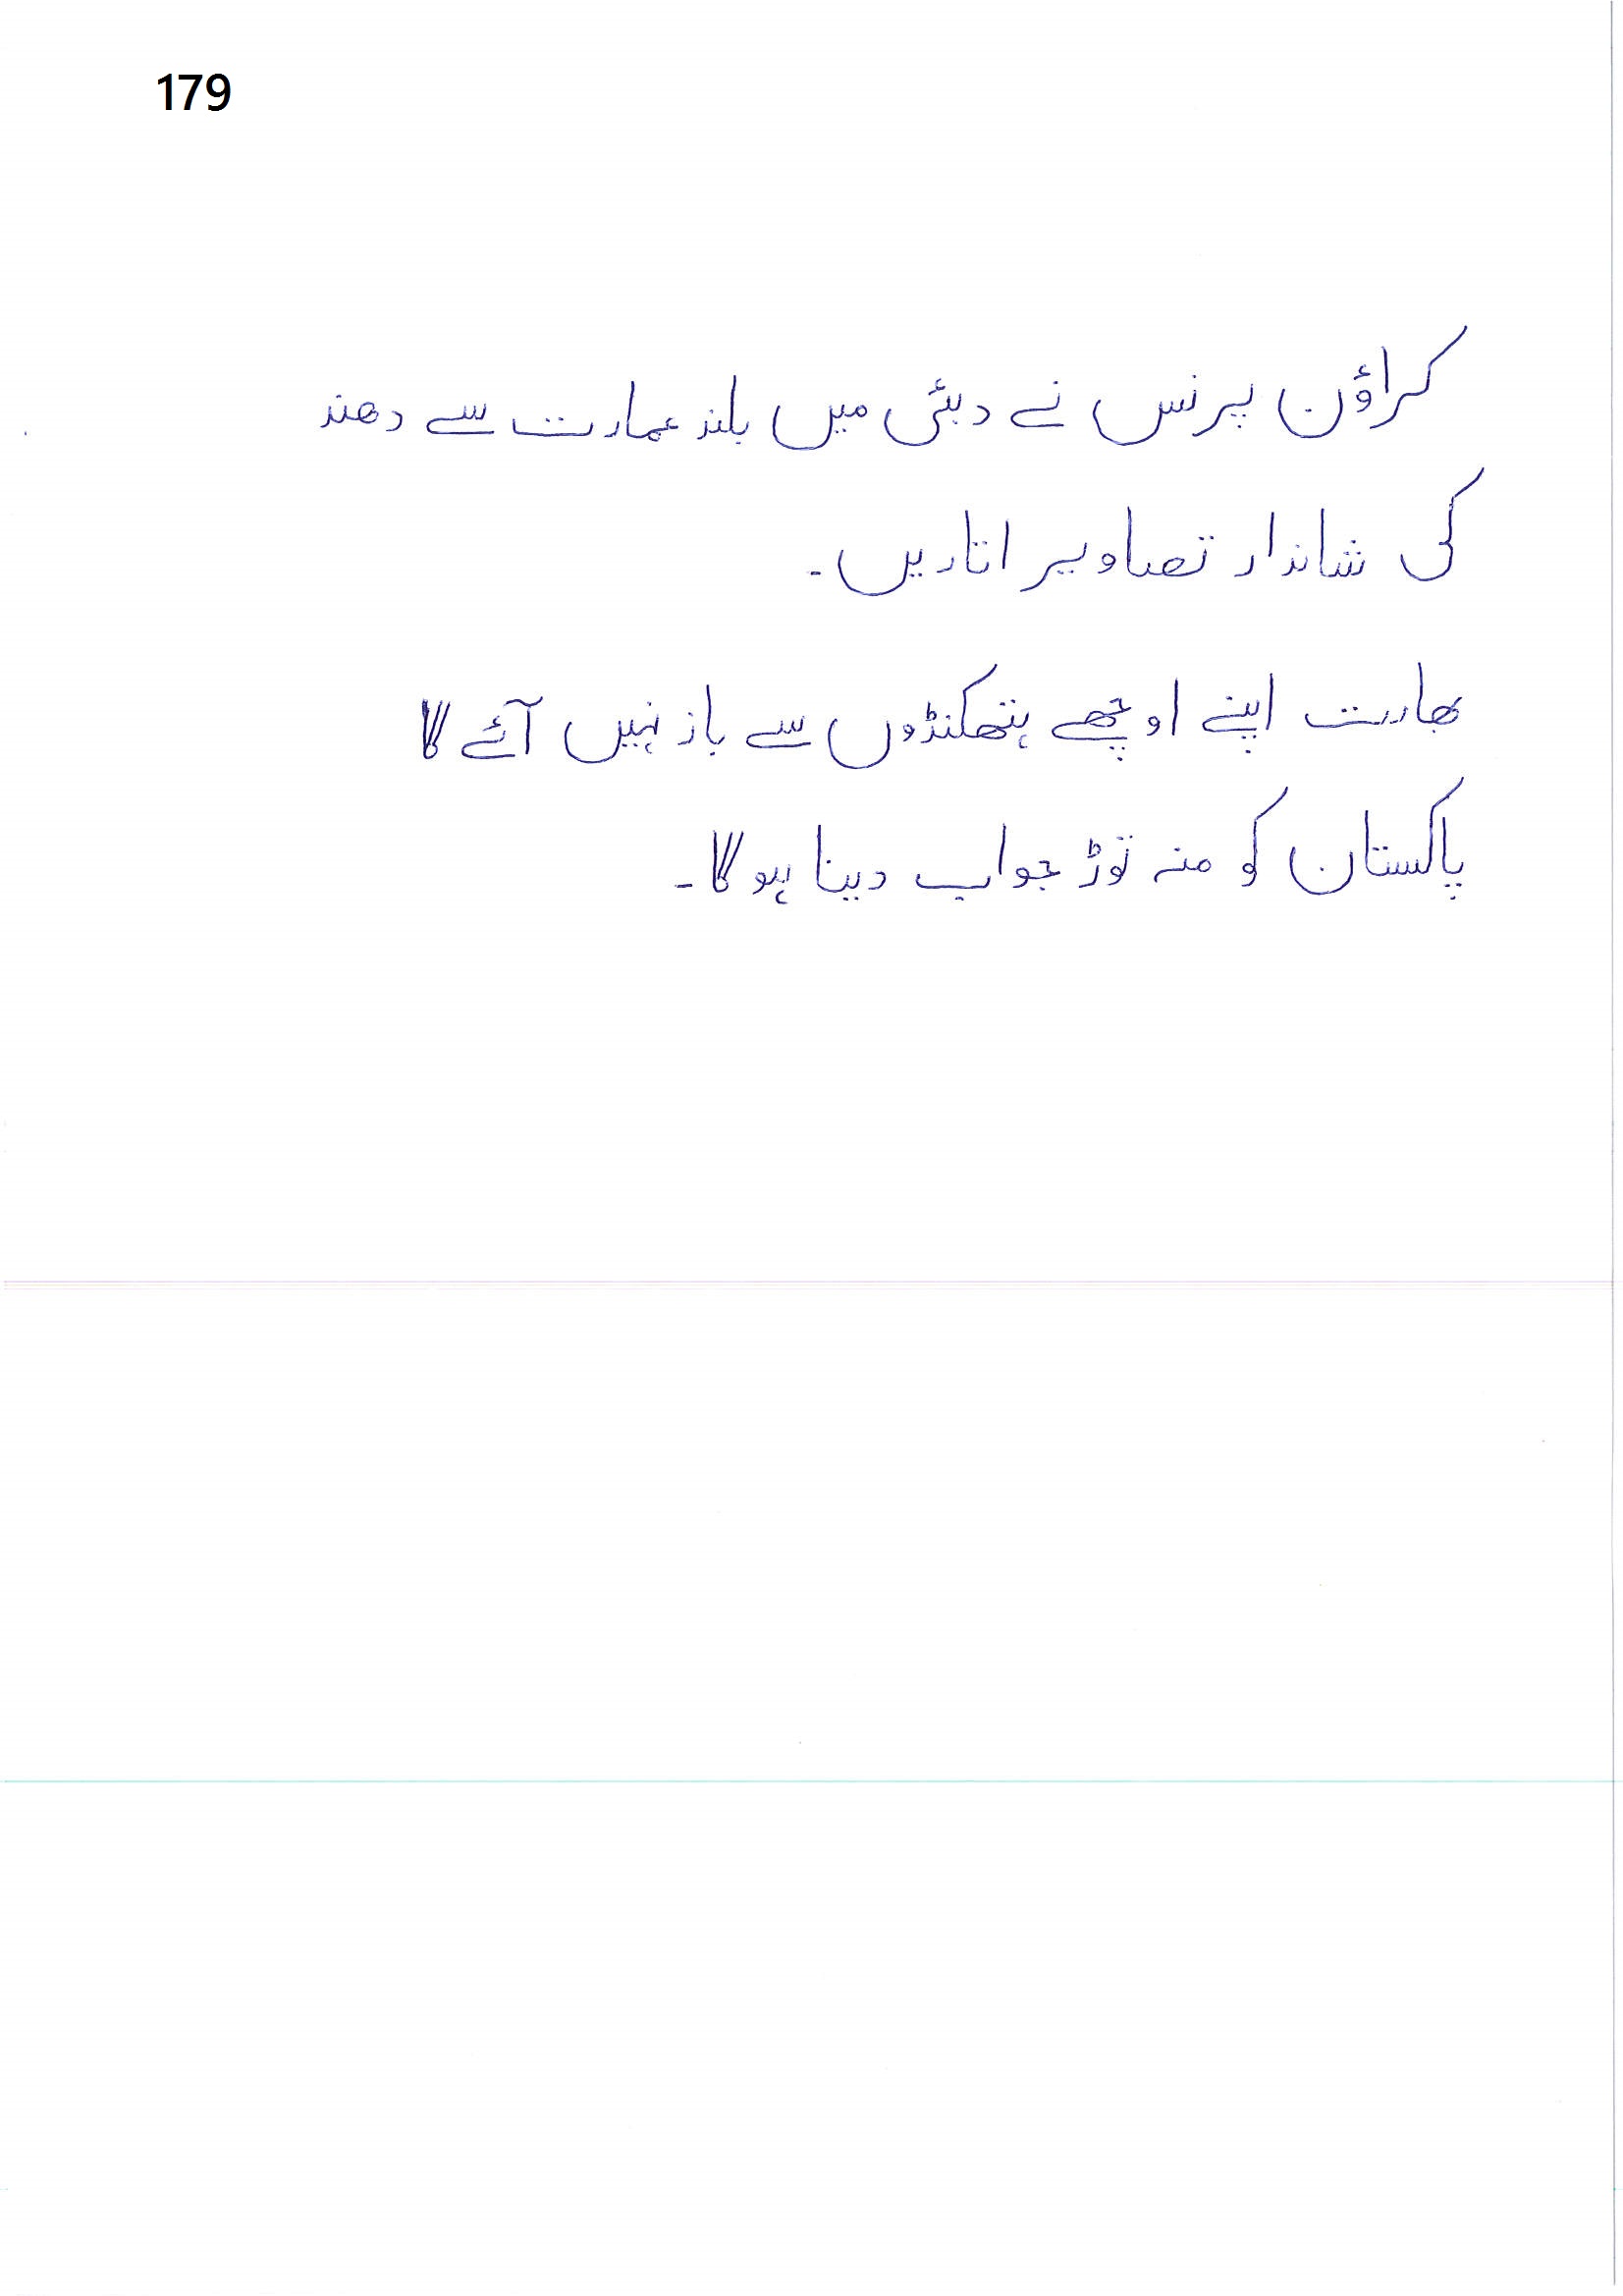 179
کراؤن پرنس نے دبئی میں بلند عمارت سے دھند
کی شاندار تصاویر اتاریں۔
بھارت اپنے اوچھے ہتھکنڈوں سے باز نہیں آئے گا
پاکستان کو منہ توڑ جواب دینا ہوگا۔